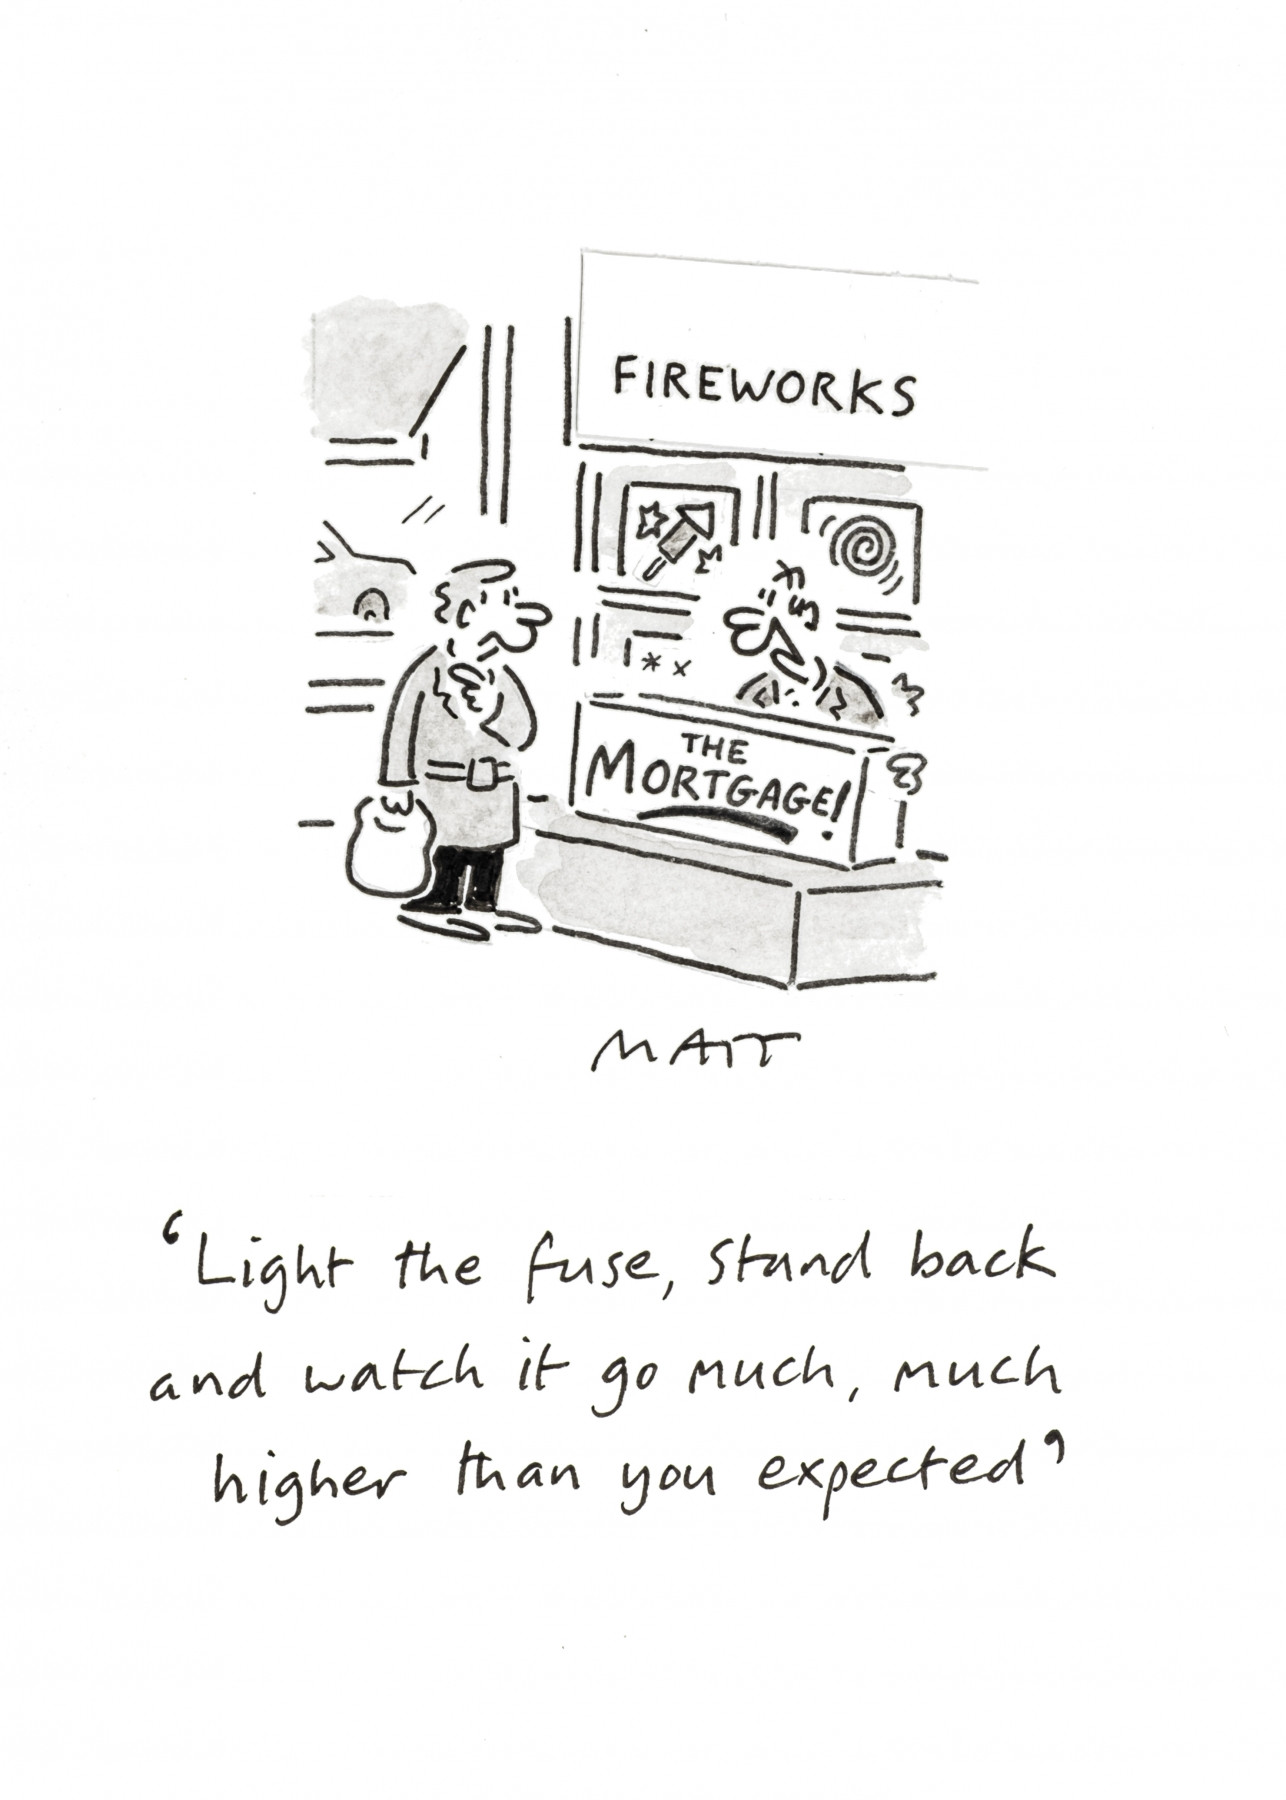 FIREWORKS
THE
MORTGAGE!
MATT
‘Light the fuse, stand back
and watch it go much, much
higher than you expected’